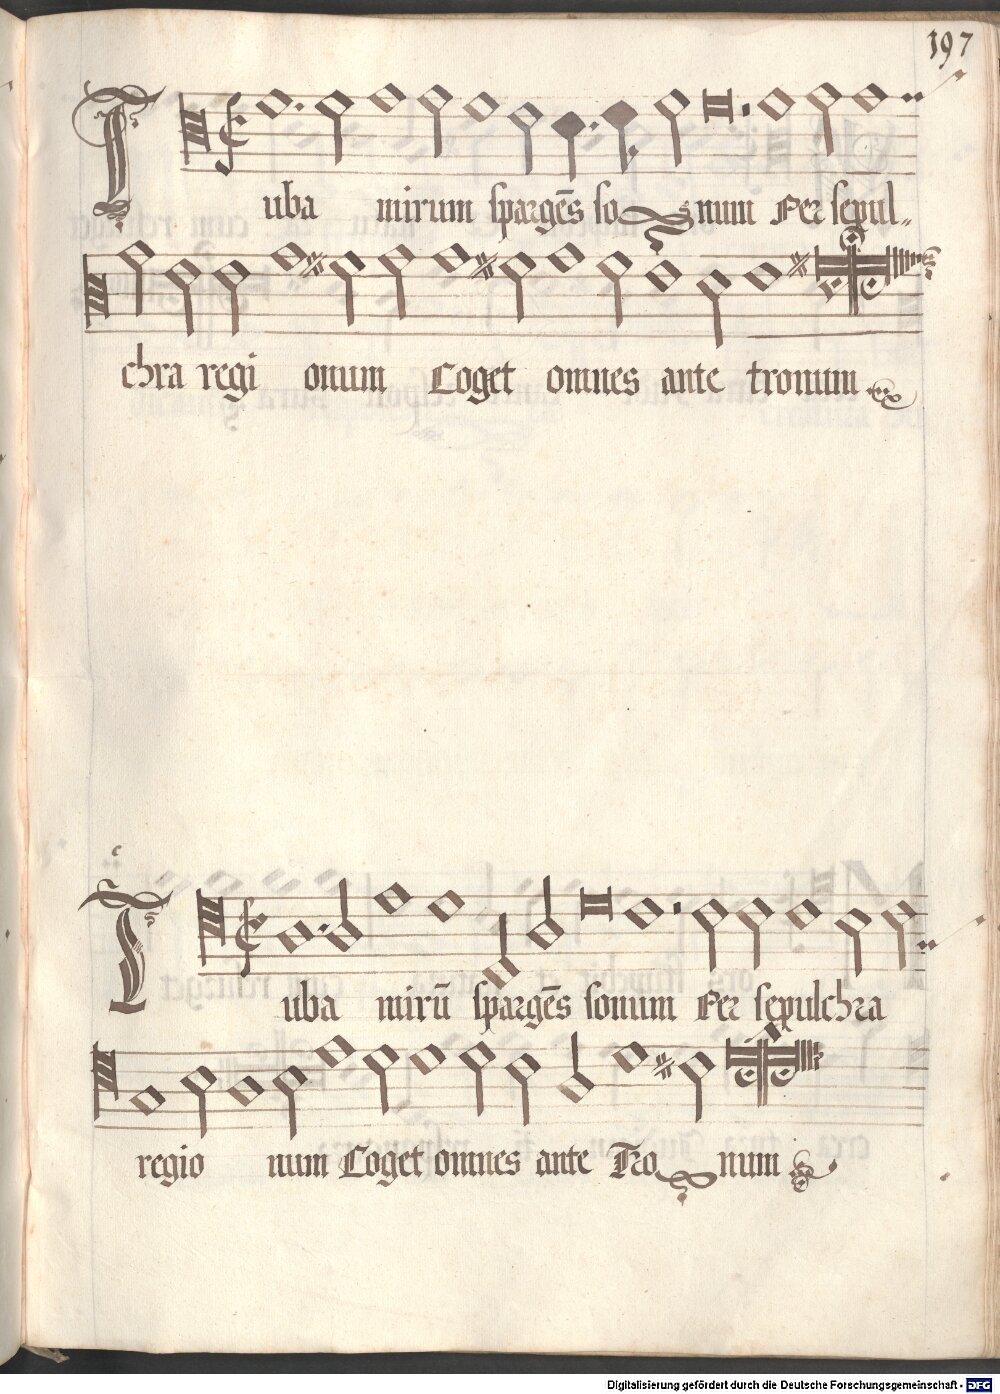 197
Tuba mirum spargēs sonum Per sepul„
chra regi onum Coget omnes ante tronum
Tuba mirū spargēs sonum Per sepulchra
regio num Coget omnes ante Tro num
Digitalisierung gefördert durch die Deutsche Forschungsgemeinschaft - DFG